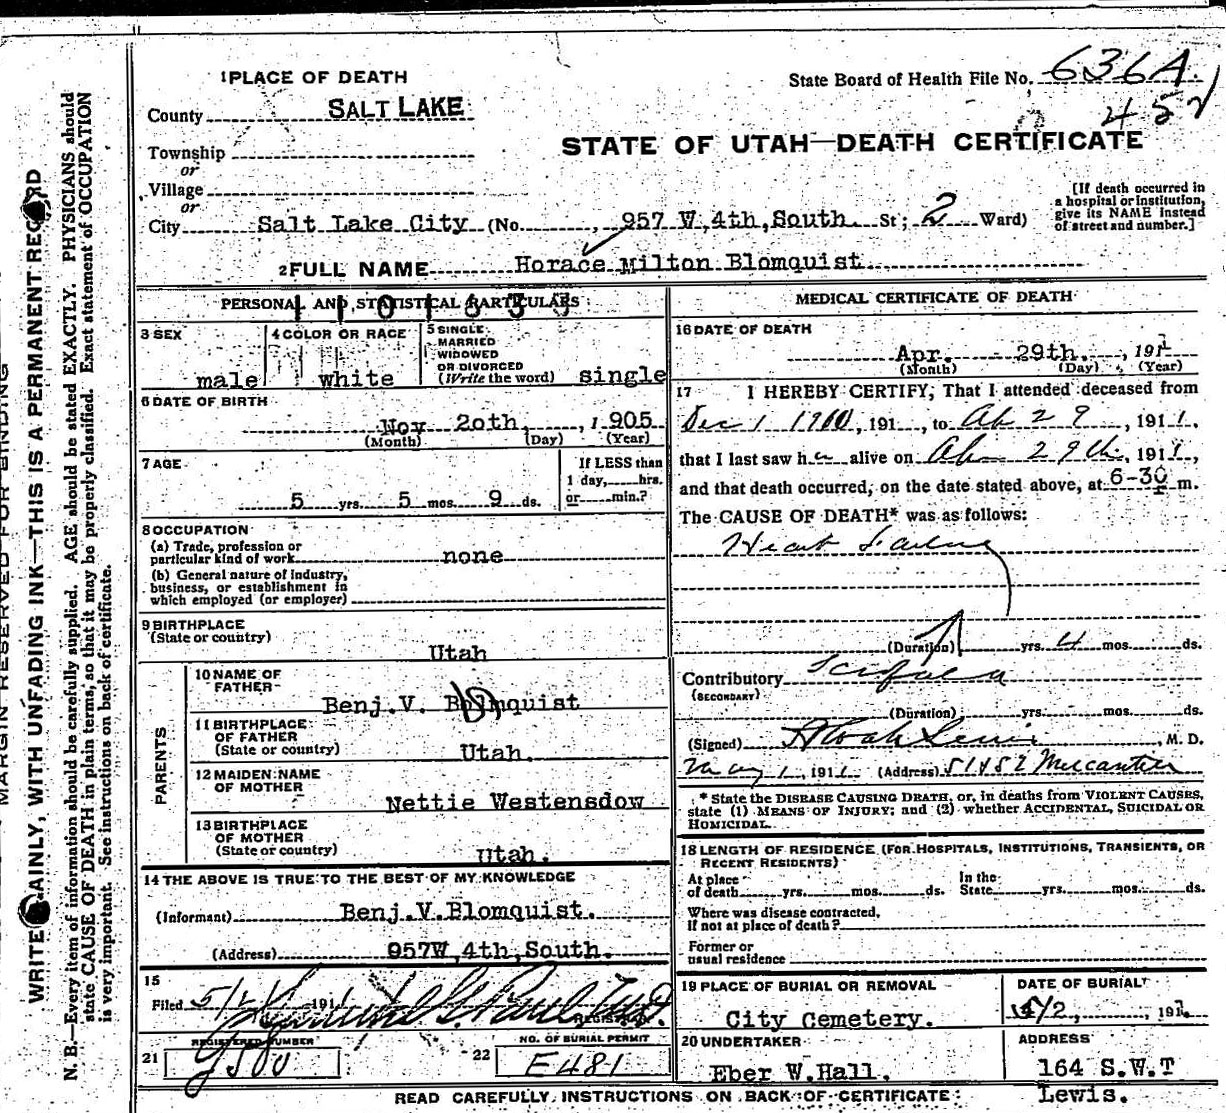 1 PLACE OF DEATH
State Board of Health File No. 636A
452
County SALT LAKE
STATE OF UTAH—DEATH CERTIFICATE
Township
or
Village
or
City Salt Lake City (No. 957 W,4th,South. St; 2 Ward)
[If death occurred in
a hospital or institution,
give its NAME instead
of street and number.]
2 FULL NAME Horace Milton Blomquist
PERSONAL AND STATISTICAL PARTICULARS
3 SEX
male
4 COLOR OR RACE
white
5 SINGLE
MARRIED
WIDOWED
OR DIVORCED
(Write the word) single
6 DATE OF BIRTH
Nov 20th, 1905
(Month) (Day) (Year)
7 AGE
5 yrs. 5 mos. 9 ds.
If LESS than
1 day, hrs.
or min.?
8 OCCUPATION
(a) Trade, profession or
particular kind of work none
(b) General nature of industry,
business, or establishment in
which employed (or employer)
9 BIRTHPLACE
(State or country)
Utah
PARENTS
10 NAME OF
FATHER
Benj.V. Blomquist
11 BIRTHPLACE
OF FATHER
(State or country) Utah.
12 MAIDEN NAME
OF MOTHER
Nettie Westensdow
13 BIRTHPLACE
OF MOTHER
(State or country) Utah.
14 THE ABOVE IS TRUE TO THE BEST OF MY KNOWLEDGE
(Informant) Benj.V.Blomquist.
(Address) 957W,4th,South.
15
Filed 5/2 1911
REGISTRAR
REGISTERED NUMBER
21
NO. OF BURIAL PERMIT
22 E481
MEDICAL CERTIFICATE OF DEATH
16 DATE OF DEATH
Apr. 29th. , 1911
(Month) (Day) (Year)
17 I HEREBY CERTIFY, That I attended deceased from
Dec 1 1910, 191 , to Ap 29 , 1911.
that I last saw h alive on Ap 29th , 1911,
and that death occurred, on the date stated above, at 6-30 P m.
The CAUSE OF DEATH* was as follows:
Heart Failure
(Duration) yrs. 4 mos. ds.
Contributory Scrofula
(SECONDARY)
(Duration) yrs. mos. ds.
(Signed) Lewis , M. D.
May 1, 1911 (Address) 51452 Mercantile
* State the DISEASE CAUSING DEATH, or, in deaths from VIOLENT CAUSES,
state (1) MEANS OF INJURY; and (2) whether ACCIDENTAL, SUICIDAL OR
HOMICIDAL.
18 LENGTH OF RESIDENCE (FOR HOSPITALS, INSTITUTIONS, TRANSIENTS, OR
RECENT RESIDENTS)
At place
of death yrs. mos. ds.
In the
State yrs. mos. ds.
Where was disease contracted,
If not at place of death?
Former or
usual residence
19 PLACE OF BURIAL OR REMOVAL
City Cemetery.
DATE OF BURIAL
5/2, , 1911.
20 UNDERTAKER
Eber W.Hall.
ADDRESS
164 S.W.T
Lewis.
READ CAREFULLY INSTRUCTIONS ON BACK OF CERTIFICATE
MARGIN RESERVED FOR BINDING
WRITE PLAINLY, WITH UNFADING INK—THIS IS A PERMANENT RECORD
N. B.—Every item of information should be carefully supplied. AGE should be stated EXACTLY. PHYSICIANS should
state CAUSE OF DEATH in plain terms, so that it may be properly classified. Exact statement of OCCUPATION
is very important. See instructions on back of certificate.